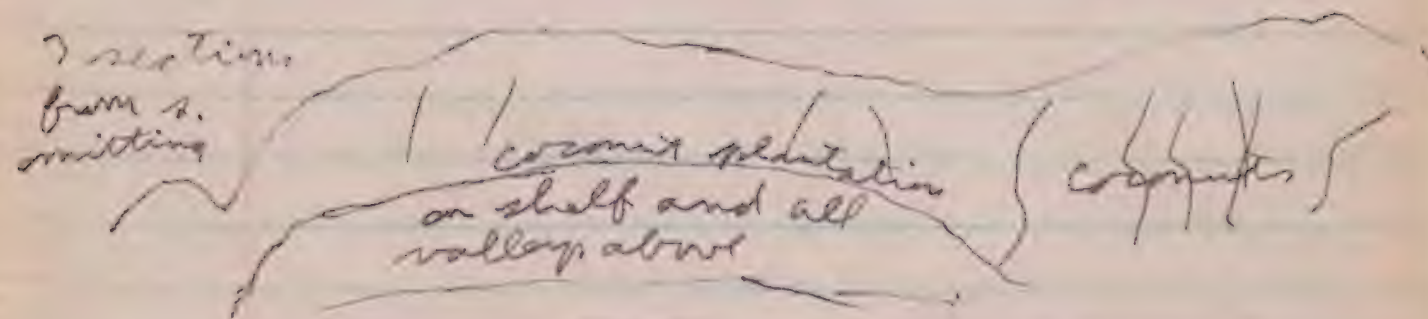 ? sections
from s.
omitting
coconut plantation
on shelf and all
valleys above
coconuts